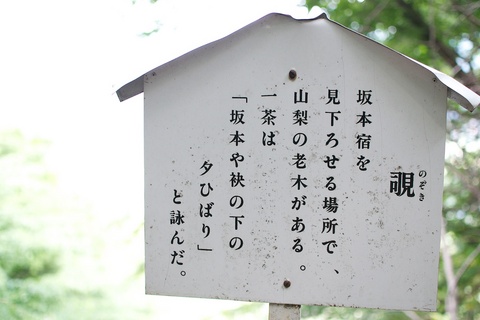 覗
のぞき
坂本宿を
見下ろせる場所で、
山梨の老木がある。
一茶は
「坂本や袂の下の
夕ひばり」
と詠んだ。